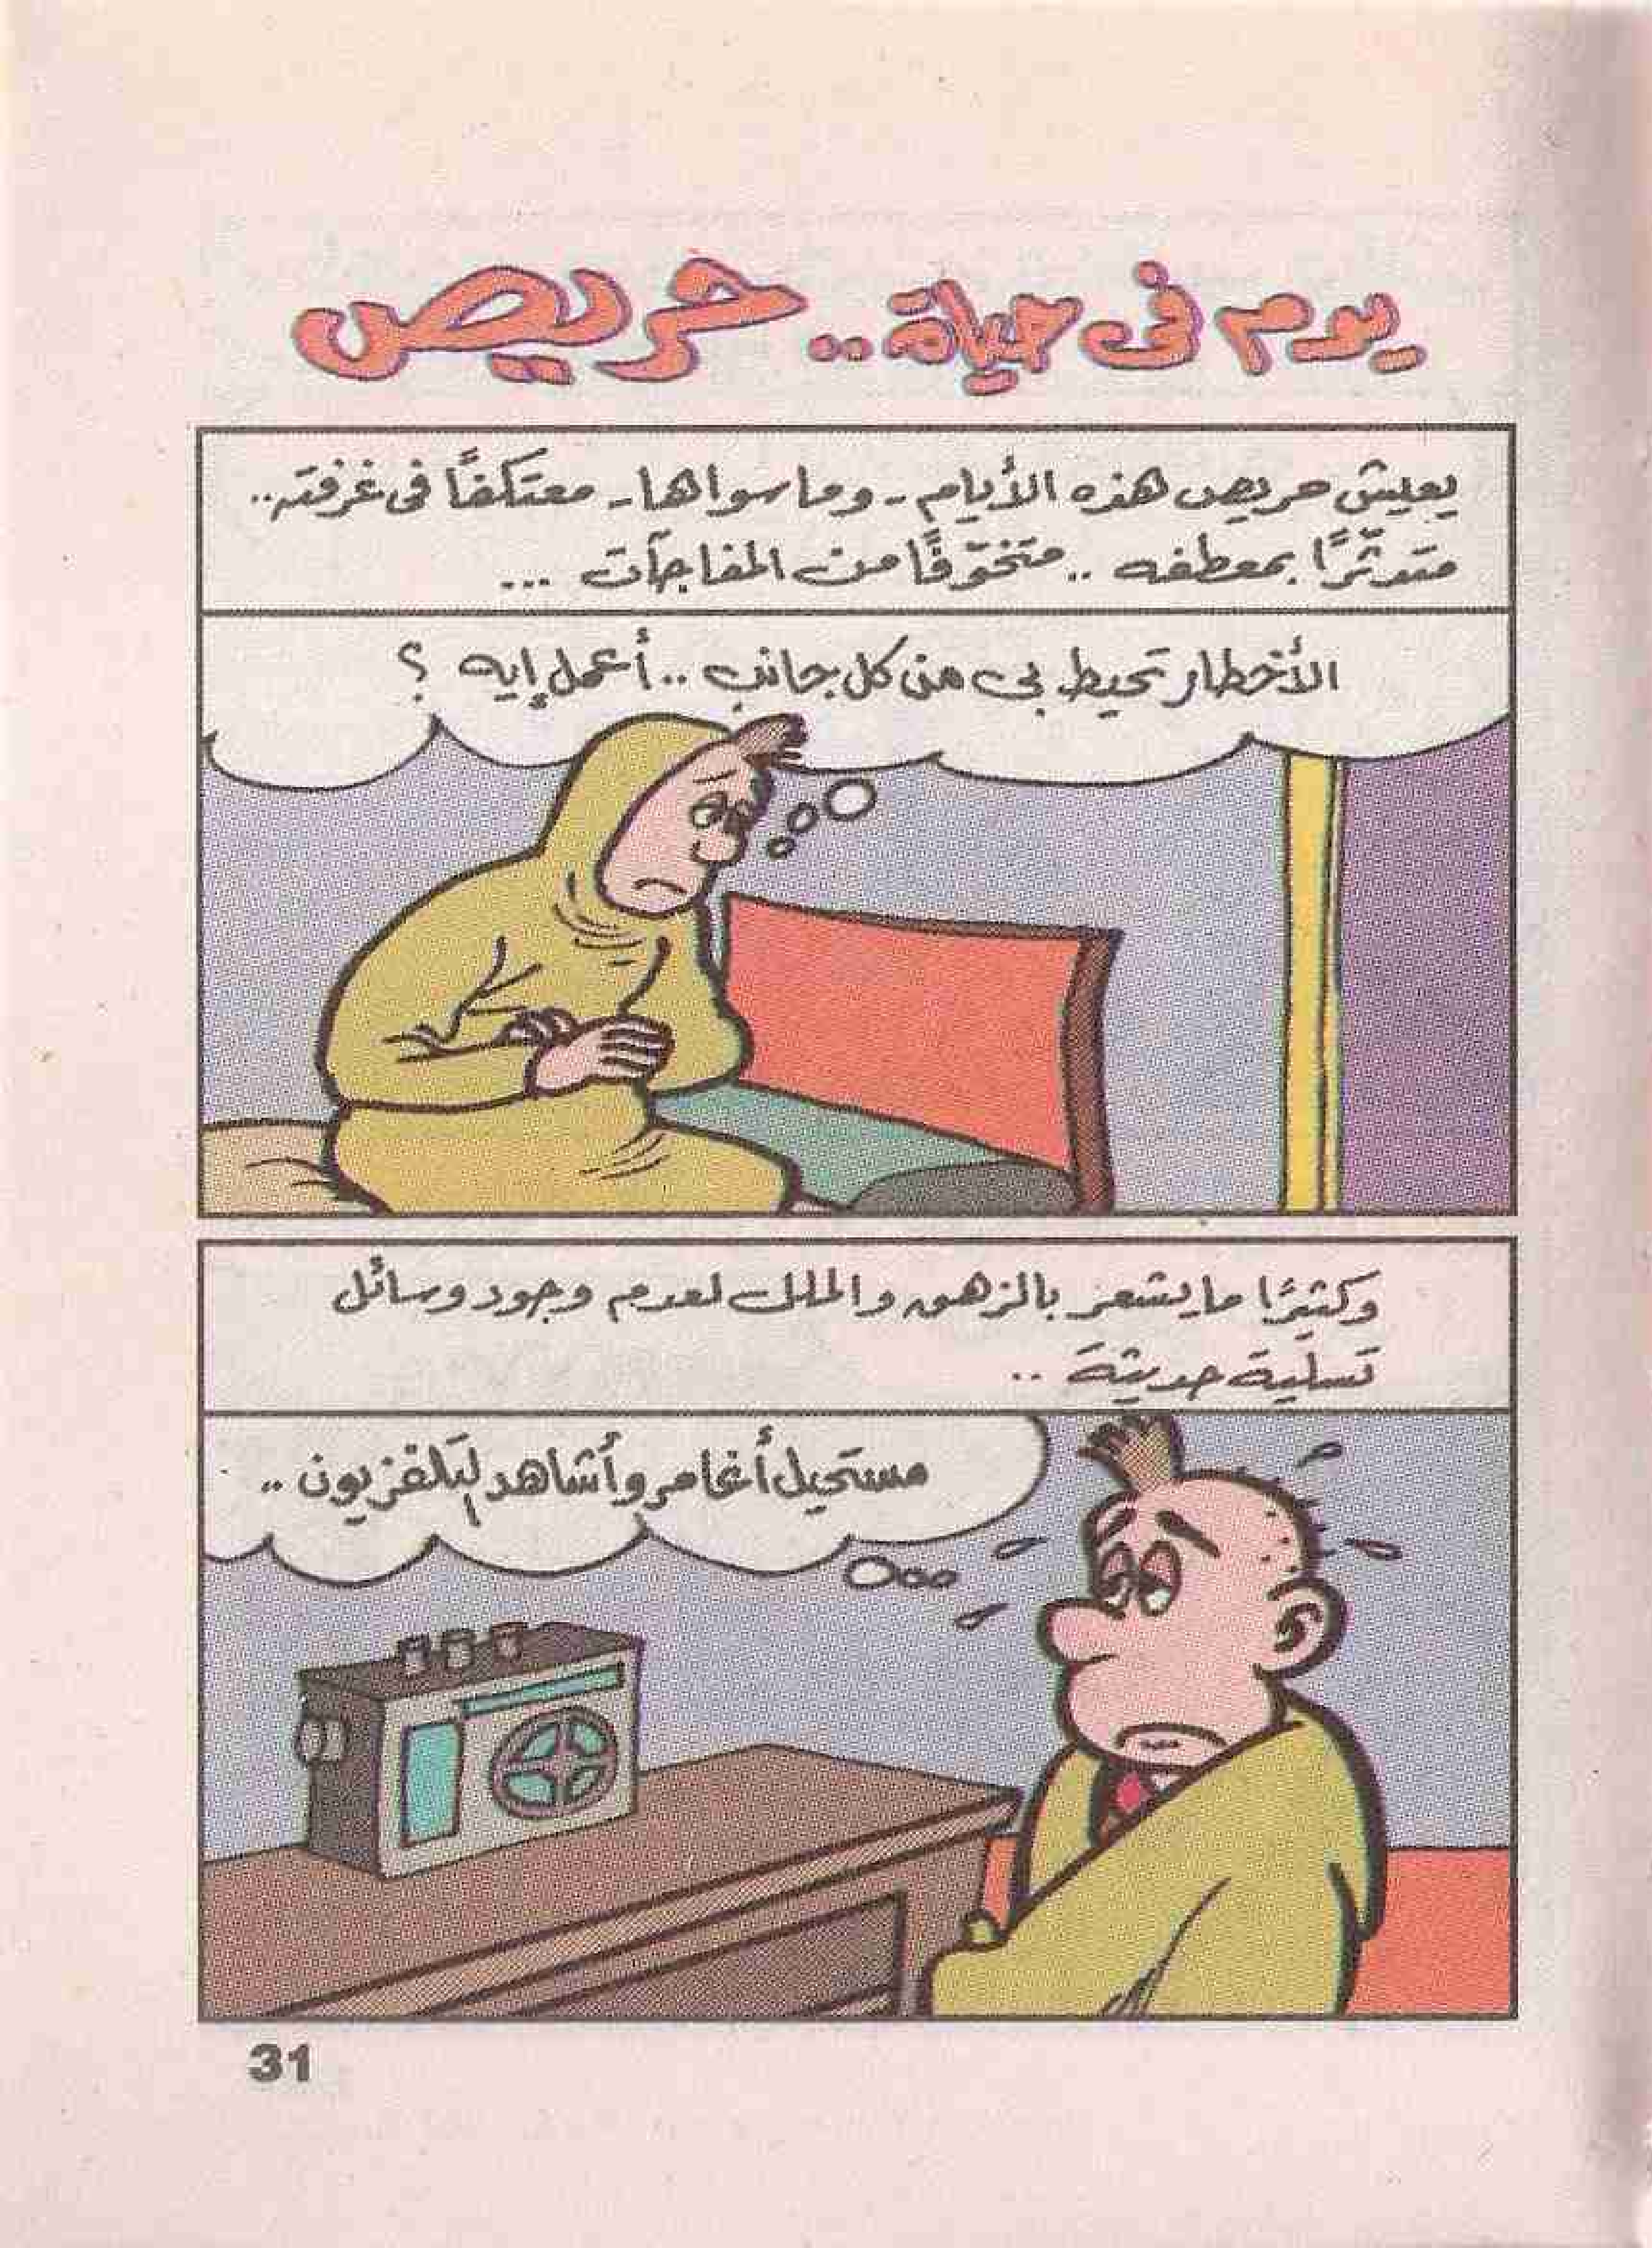 يوم فى حياة.. حريص
يعيش حريص هذه الأيام - وما سواها - معتكفاً فى غرفته..
متدثّرًا بمعطفه .. متخوّفًا من المفاجآت ...
الأخطار تحيط بى من كل جانب .. أعمل إيه ؟
وكثيرًا ما يشعر بالزهق والملل لعدم وجود وسائل
تسلية حديثة ..
مستحيل أغامر وأشاهد التلفزيون ..
31